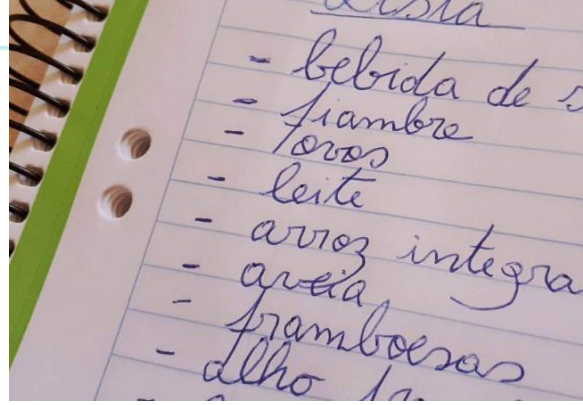 Lista
- bebida de s
- fiambre
- ovos
- leite
- arroz integra
- aveia
- framboesas
- alho